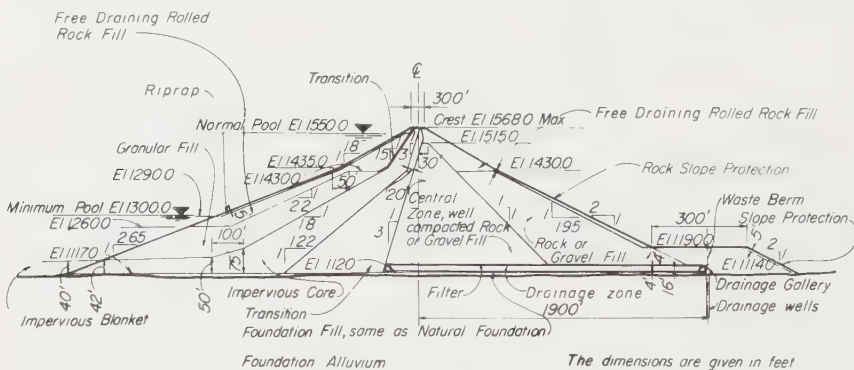 Free Draining Rolled
Rock Fill
Riprap
Transition
℄
300'
Normal Pool El.1550.0
Crest El.1568.0 Max
Free Draining Rolled Rock Fill
El.1515.0
Granular Fill
El.1435.0
El.1430.0
El.1430.0
Rock Slope Protection
El.1290.0
Minimum Pool El.1300.0
El.1260.0
Central
Zone, well
compacted Rock
or Gravel Fill
Waste Berm
Slope Protection
300'
100'
El.1190.0
El.1117.0
Rock or
Gravel Fill
El.1114.0
El.1112.0
40'
42'
50'
75'
Impervious Core
Filter
Drainage zone
1900'
4'
16'
Drainage Gallery
Drainage wells
Impervious Blanket
Transition
Foundation Fill, same as Natural Foundation
Foundation Alluvium
The dimensions are given in feet